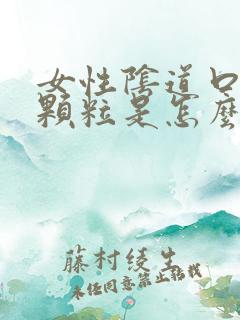 女性陰道口
顆粒是怎麼
藤村綾生
未任同意禁止轉載